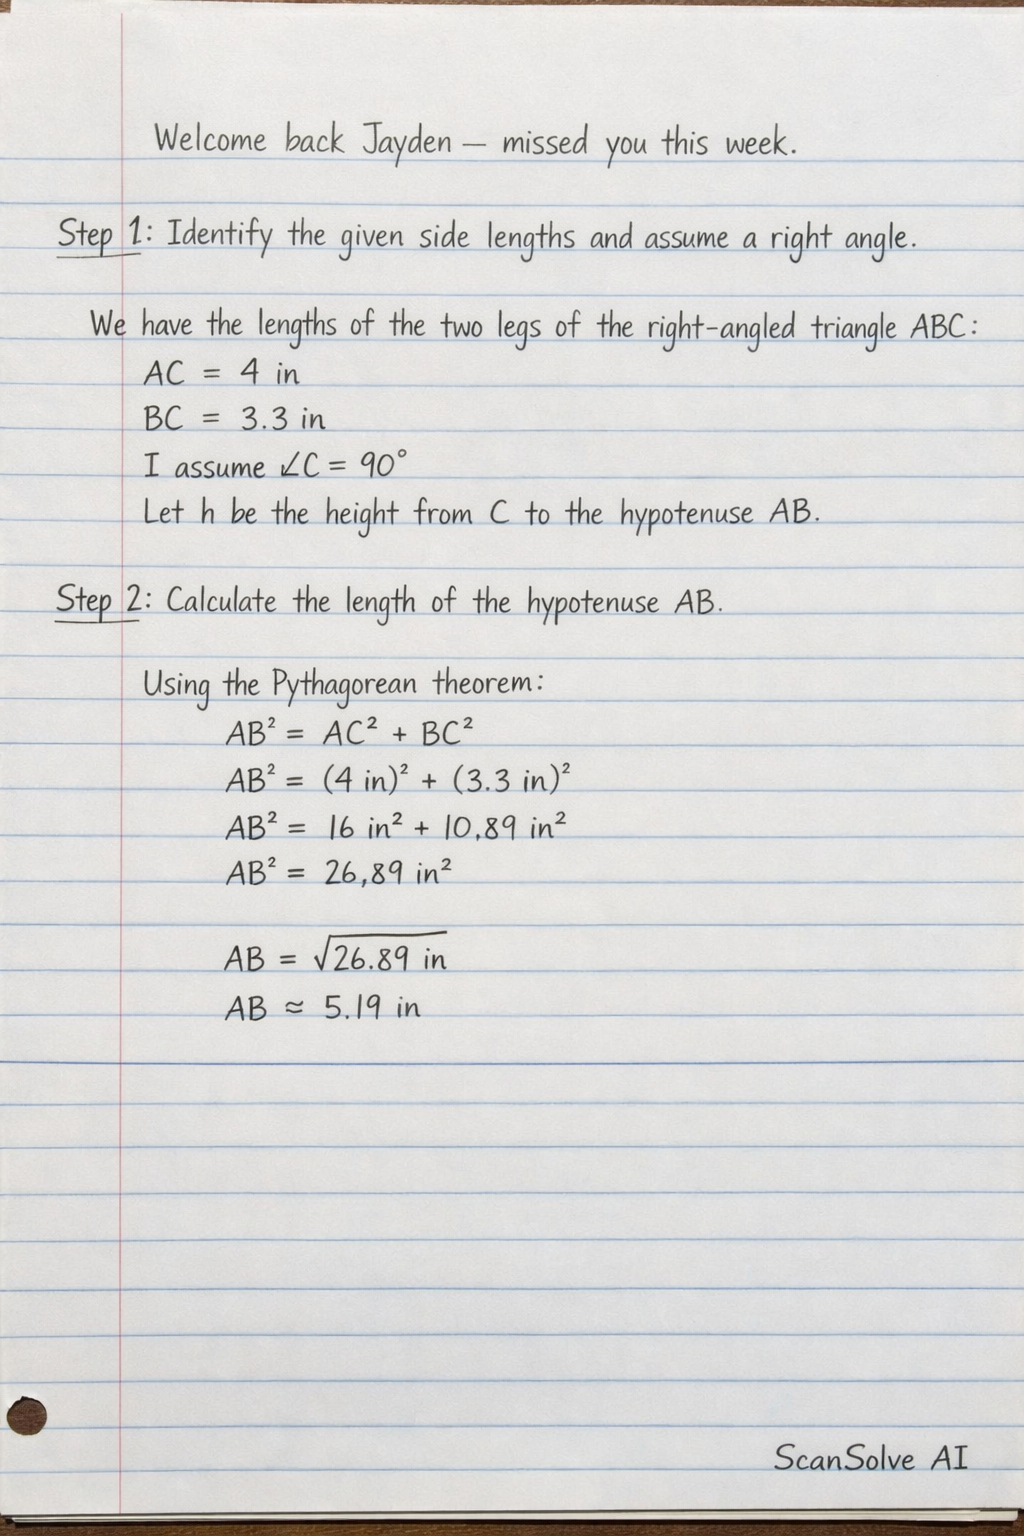 Welcome back Jayden — missed you this week.
Step 1: Identify the given side lengths and assume a right angle.
We have the lengths of the two legs of the right-angled triangle ABC:
AC = 4 in
BC = 3.3 in
I assume ∠C = 90°
Let h be the height from C to the hypotenuse AB.
Step 2: Calculate the length of the hypotenuse AB.
Using the Pythagorean theorem:
AB² = AC² + BC²
AB² = (4 in)² + (3.3 in)²
AB² = 16 in² + 10,89 in²
AB² = 26,89 in²
AB = √26.89 in
AB ≈ 5.19 in
ScanSolve AI